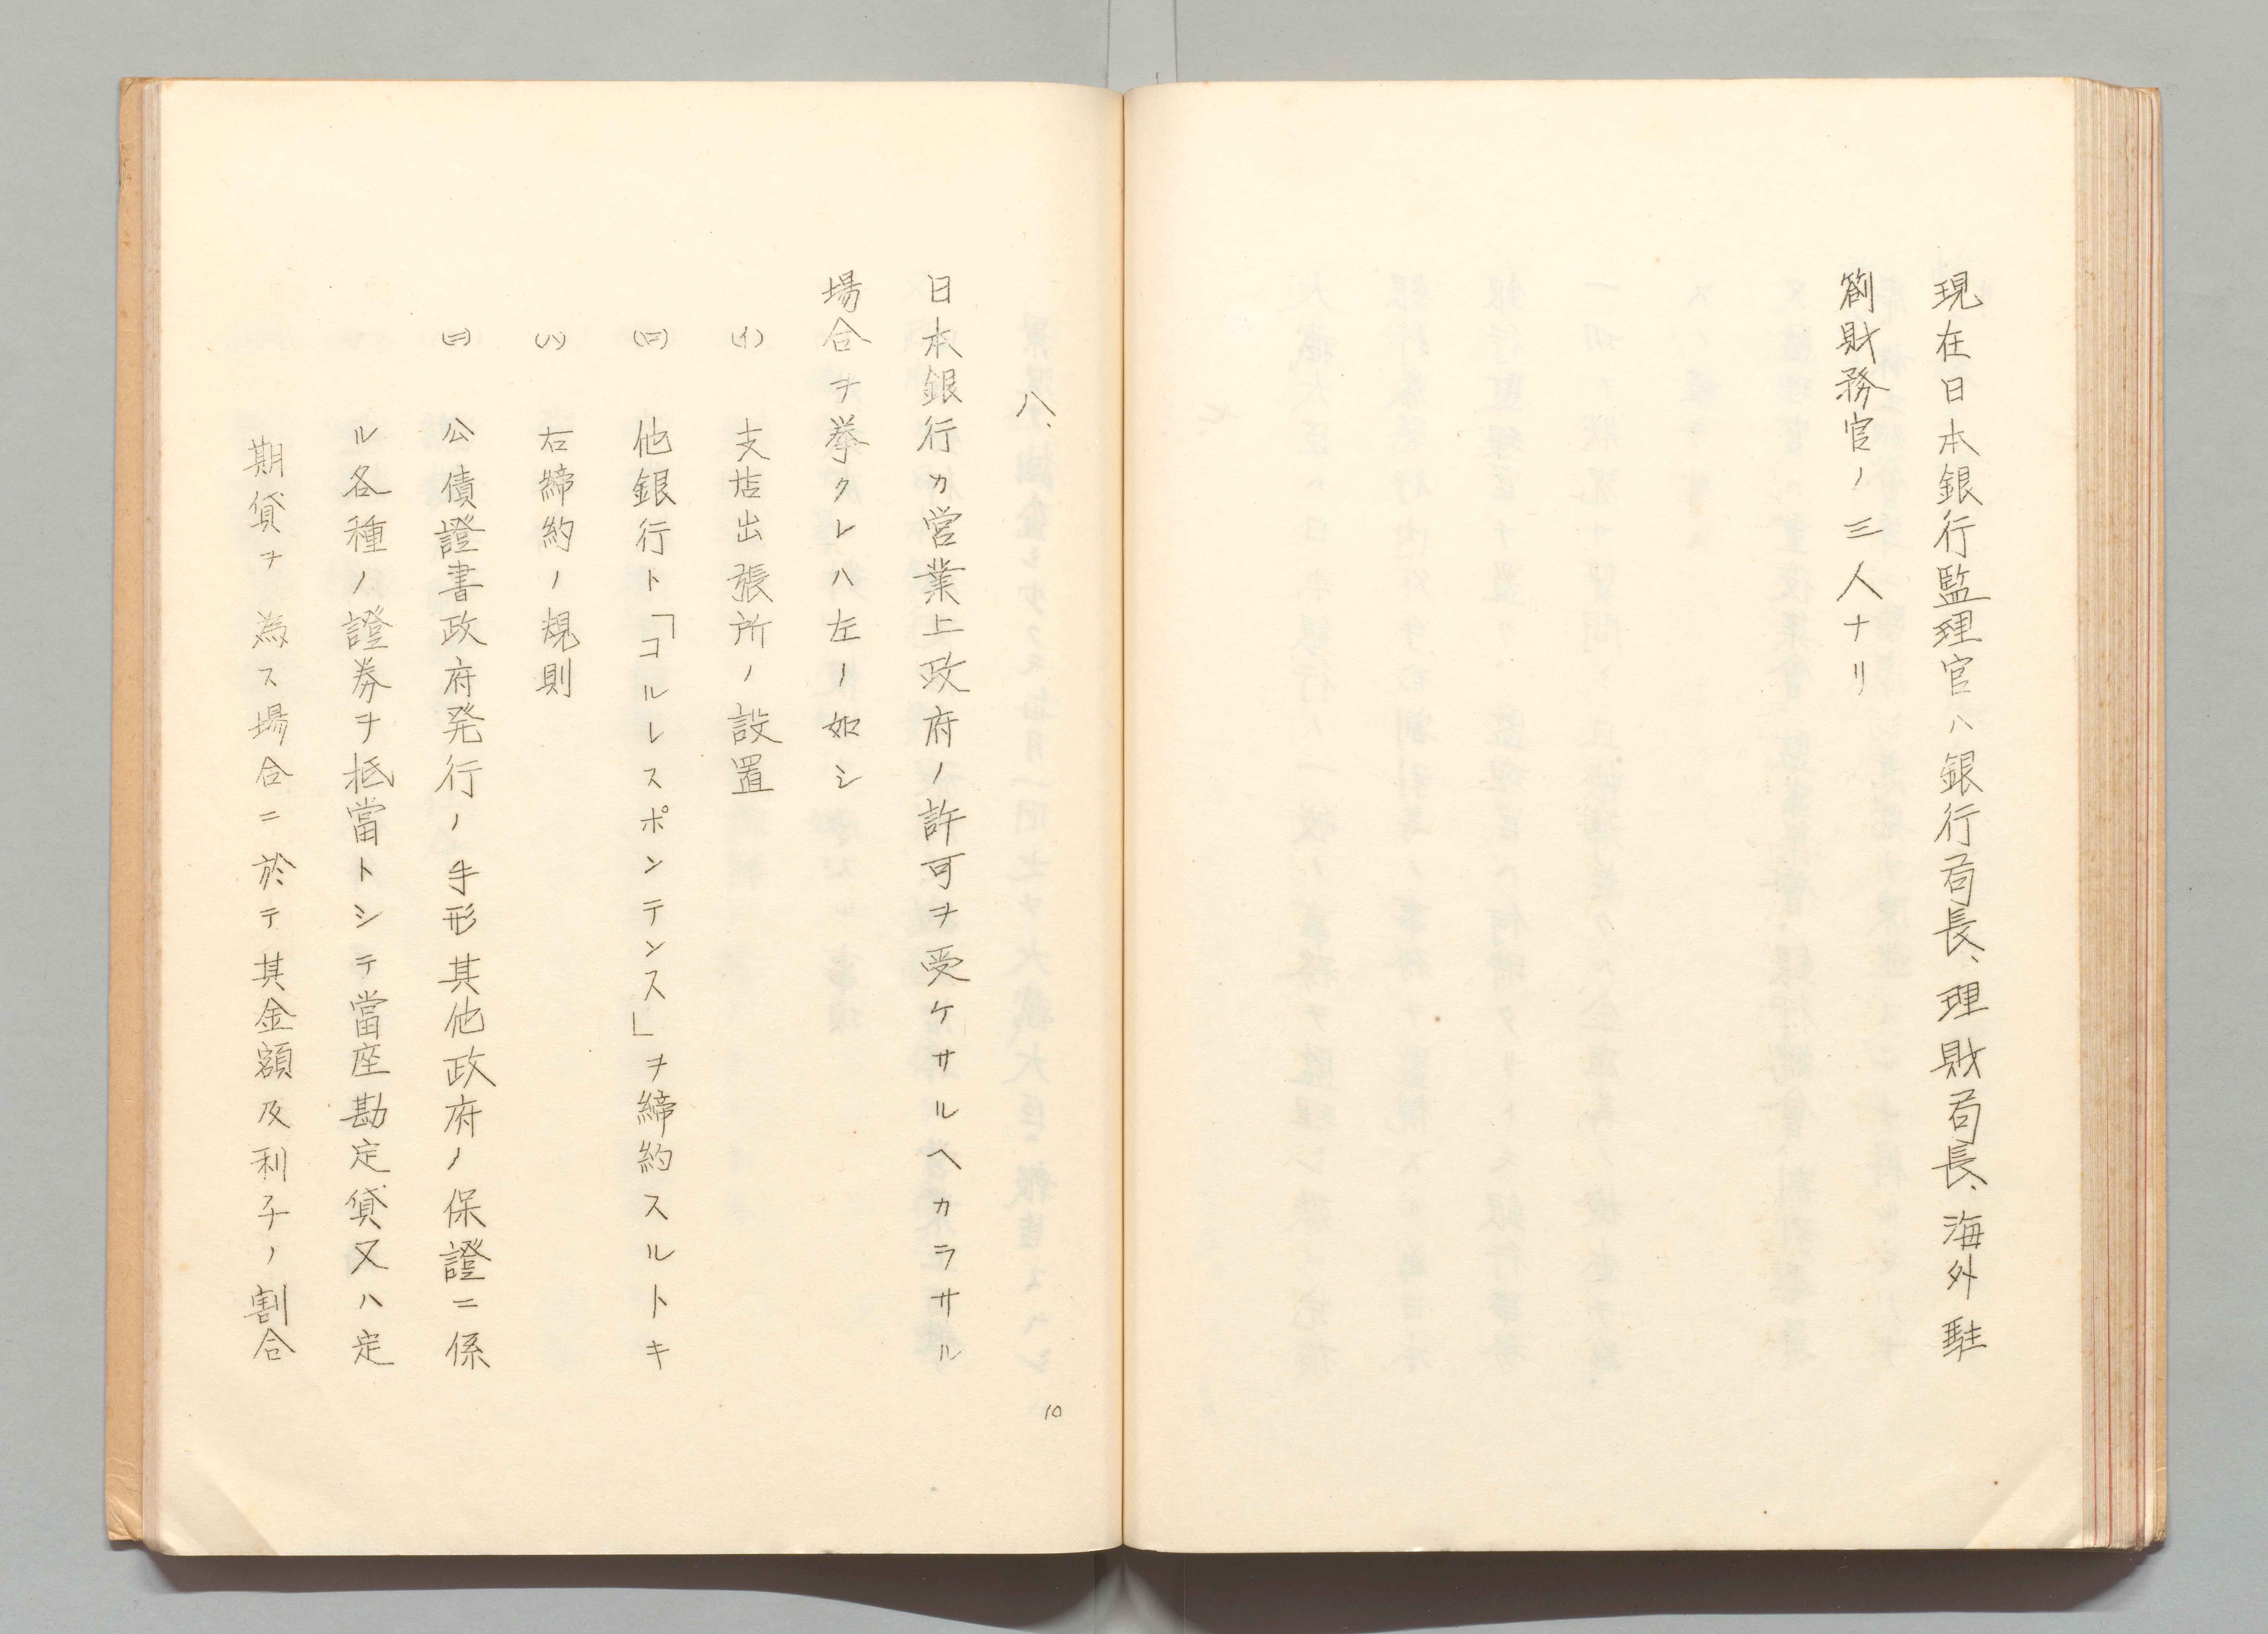 現在日本銀行監理官ハ銀行局長、理財局長、海外駐
箚財務官ノ三人ナリ
八、
日本銀行カ営業上政府ノ許可ヲ受ケサルヘカラサル
場合ヲ挙クレハ左ノ如シ
(イ) 支店出張所ノ設置
(ロ) 他銀行ト「コルレスポンテンス」ヲ締約スルトキ
(ハ) 右締約ノ規則
(ニ) 公債證書政府発行ノ手形其他政府ノ保證ニ係
ル各種ノ證券ヲ抵當トシテ當座勘定貸又ハ定
期貸ヲ為ス場合ニ於テ其金額及利子ノ割合
10